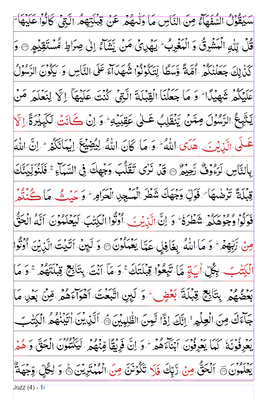 سَيَقُوۡلُ السُّفَهَآءُ مِنَ النَّاسِ مَا وَلّٰىهُمۡ عَنۡ قِبۡلَتِهِمُ الَّتِىۡ كَانُوۡا عَلَيۡهَا ؕ
قُلْ لِّلّٰهِ الۡمَشۡرِقُ وَ الۡمَغۡرِبُ ؕ يَهۡدِىۡ مَنۡ يَّشَآءُ اِلٰى صِرَاطٍ مُّسۡتَقِيۡمٍ ۝ وَ
كَذٰلِكَ جَعَلۡنٰكُمۡ اُمَّةً وَّسَطًا لِّتَکُوۡنُوۡا شُهَدَآءَ عَلَى النَّاسِ وَ يَكُوۡنَ الرَّسُوۡلُ
عَلَيۡكُمۡ شَهِيۡدًا ؕ وَ مَا جَعَلۡنَا الۡقِبۡلَةَ الَّتِىۡ كُنۡتَ عَلَيۡهَآ اِلَّا لِنَعۡلَمَ مَنۡ
يَّتَّبِعُ الرَّسُوۡلَ مِمَّنۡ يَّنۡقَلِبُ عَلٰى عَقِبَيۡهِ ؕ وَ اِنۡ كَانَتۡ لَكَبِيۡرَةً اِلَّا
عَلَى الَّذِيۡنَ هَدَى اللّٰهُ ؕ وَ مَا كَانَ اللّٰهُ لِيُضِيْعَ اِيۡمَانَكُمۡ ؕ اِنَّ اللّٰهَ
بِالنَّاسِ لَرَءُوۡفٌ رَّحِيۡمٌ ۝ قَدۡ نَرٰى تَقَلُّبَ وَجۡهِكَ فِى السَّمَآءِ ۚ فَلَـنُوَلِّيَنَّكَ
قِبۡلَةً تَرۡضٰٮهَا ؕ فَوَلِّ وَجۡهَكَ شَطۡرَ الۡمَسۡجِدِ الۡحَـرَامِ ؕ وَ حَيۡثُ مَا كُنۡتُمۡ
فَوَلُّوۡا وُجُوۡهَكُمۡ شَطۡرَهٗ ؕ وَ اِنَّ الَّذِيۡنَ اُوۡتُوا الۡكِتٰبَ لَيَـعۡلَمُوۡنَ اَنَّهُ الۡحَـقُّ
مِنۡ رَّبِّهِمۡ ؕ وَ مَا اللّٰهُ بِغَافِلٍ عَمَّا يَعۡمَلُوۡنَ ۝ وَ لَئِنۡ اَ تَيۡتَ الَّذِيۡنَ اُوۡتُوا
الۡكِتٰبَ بِكُلِّ اٰيَةٍ مَّا تَبِعُوۡا قِبۡلَتَكَ ۚ وَ مَآ اَنۡتَ بِتَابِعٍ قِبۡلَتَهُمۡ ۚ وَ مَا
بَعۡضُهُمۡ بِتَابِعٍ قِبۡلَةَ بَعۡضٍ ؕ وَ لَئِنِ اتَّبَعۡتَ اَهۡوَآءَهُمۡ مِّنۡۢ بَعۡدِ مَا
جَآءَكَ مِنَ الۡعِلۡمِ ۙ اِنَّكَ اِذًا لَّمِنَ الظّٰلِمِيۡنَ ۝ اَلَّذِيۡنَ اٰتَيۡنٰهُمُ الۡكِتٰبَ
يَعۡرِفُوۡنَهٗ كَمَا يَعۡرِفُوۡنَ اَبۡنَآءَهُمۡ ؕ وَ اِنَّ فَرِيۡقًا مِّنۡهُمۡ لَيَكۡتُمُوۡنَ الۡحَـقَّ وَ هُمۡ
يَعۡلَمُوۡنَ ۝ اَلۡحَـقُّ مِنۡ رَّبِّكَ فَلَا تَكُوۡنَنَّ مِنَ الۡمُمۡتَرِيۡنَ ۝ وَ لِكُلٍّ وِّجۡهَةٌ
Juzz (4) -